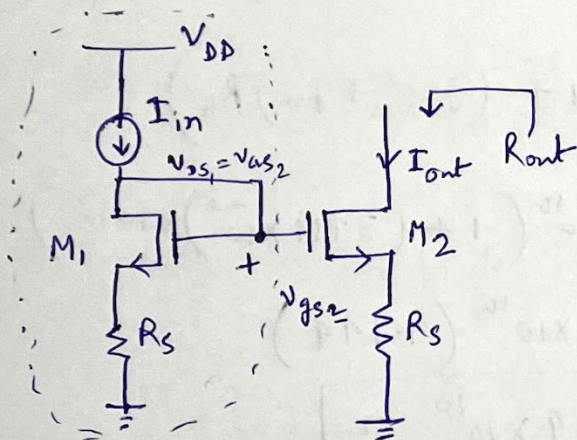 V_DD
I_in
v_DS1 = v_GS2
I_out
R_out
M_1
M_2
+
v_gs2
R_S
R_S